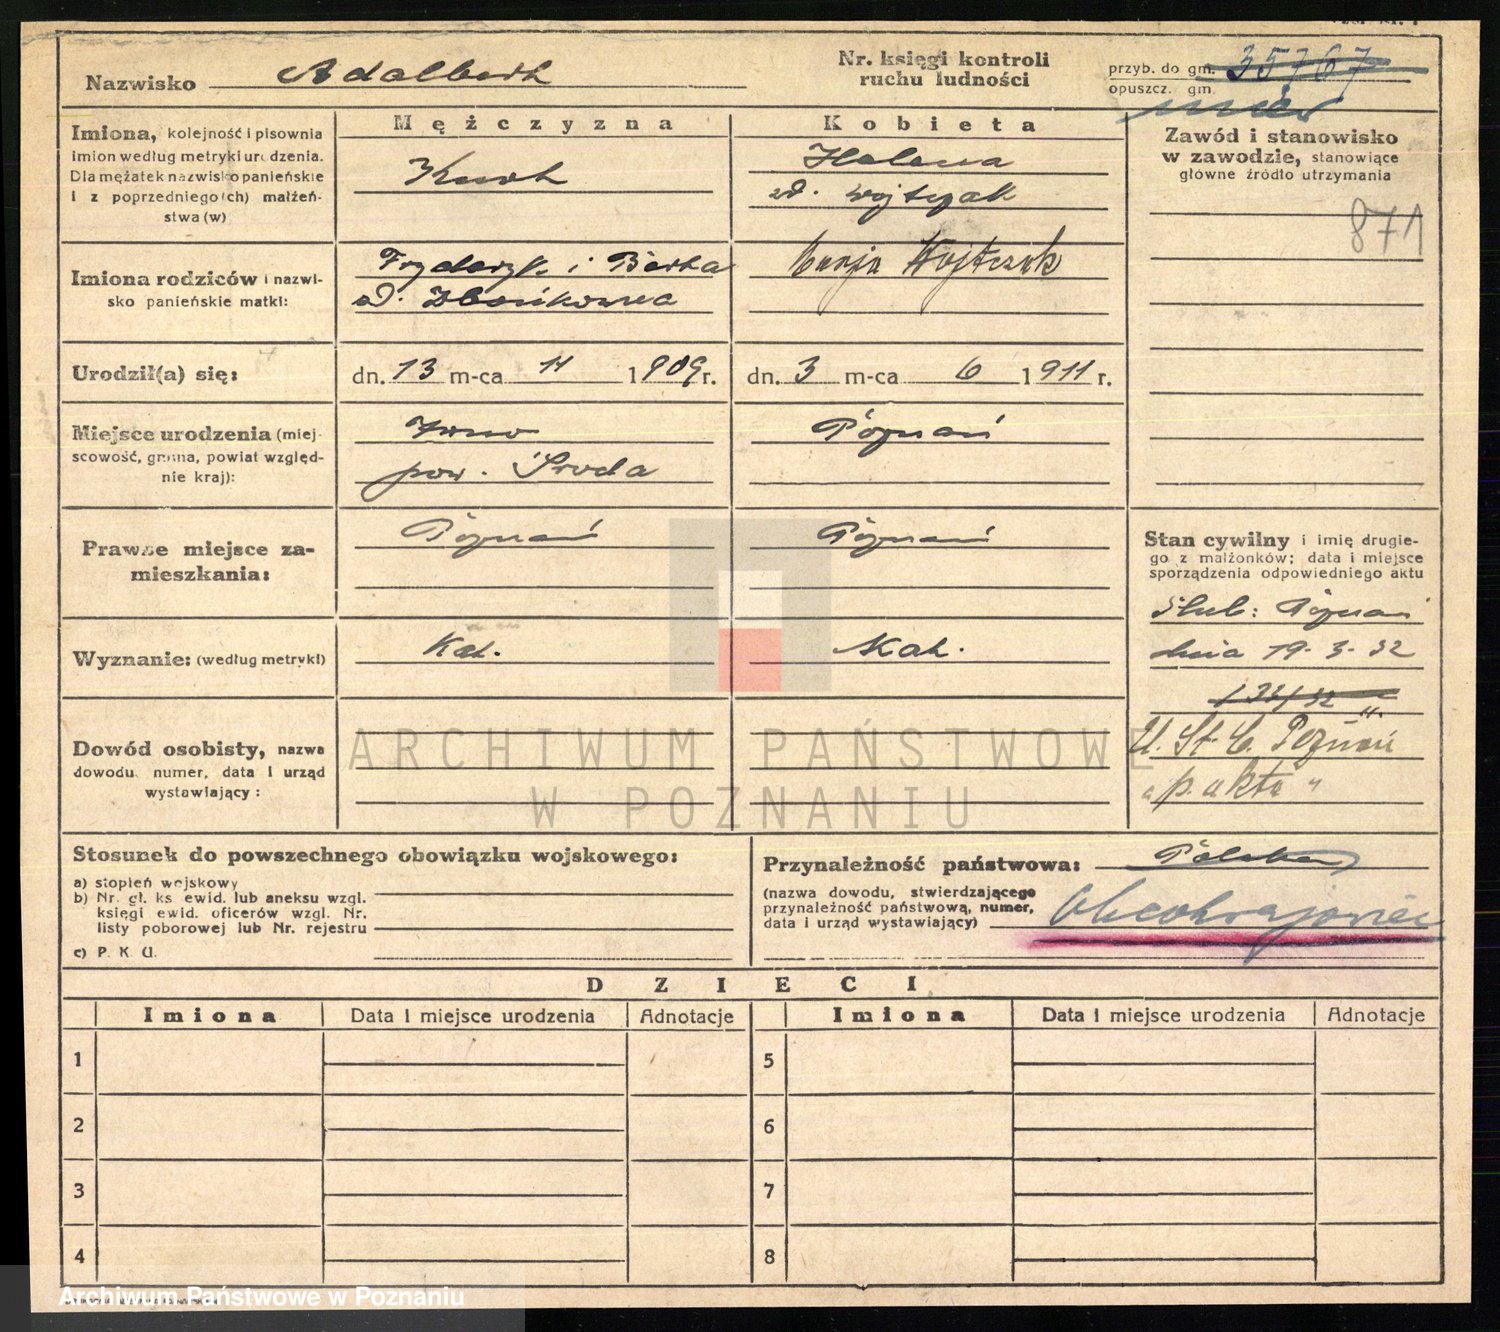 Nazwisko Adalbert
Nr. księgi kontroli
ruchu ludności
przyb. do gm. 35767
opuszcz. gm.
Imiona, kolejność i pisownia
imion według metryki urodzenia.
Dla mężatek nazwisko panieńskie
i z poprzedniego(ch) małżeń-
stwa (w)
Mężczyzna
Kurt
Kobieta
Helena
zd. Wojtczak
Zawód i stanowisko
w zawodzie, stanowiące
główne źródło utrzymania
871
Imiona rodziców i nazwi-
sko panieńskie matki:
Fryderyk i Berta
zd.
Marja Wojtczak
Urodził(a) się:
dn. 13 m-ca 11 1909 r.
dn. 3 m-ca 6 1911 r.
Miejsce urodzenia (miej-
scowość, gmina, powiat względ-
nie kraj):
pow. Środa
Poznań
Prawne miejsce za-
mieszkania:
Poznań
Poznań
Stan cywilny i imię drugie-
go z małżonków; data i miejsce
sporządzenia odpowiedniego aktu
Ślub: Poznań
dnia 19.3.32
U. St. C. Poznań
"p. akta"
Wyznanie: (według metryki)
Kat.
Kat.
Dowód osobisty, nazwa
dowodu, numer, data i urząd
wystawiający:
ARCHIWUM PAŃSTWOWE
W POZNANIU
Stosunek do powszechnego obowiązku wojskowego:
a) stopień wojskowy
b) Nr. gł. ks ewid. lub aneksu wzgl.
księgi ewid. oficerów wzgl. Nr.
listy poborowej lub Nr. rejestru
c) P. K. U.
Przynależność państwowa: Polska
(nazwa dowodu, stwierdzającego
przynależność państwową, numer,
data i urząd wystawiający)
Obcokrajowiec
DZIECI
Imiona Data i miejsce urodzenia Adnotacje Imiona Data i miejsce urodzenia Adnotacje
1 5
2 6
3 7
4 8
Archiwum Państwowe w Poznaniu